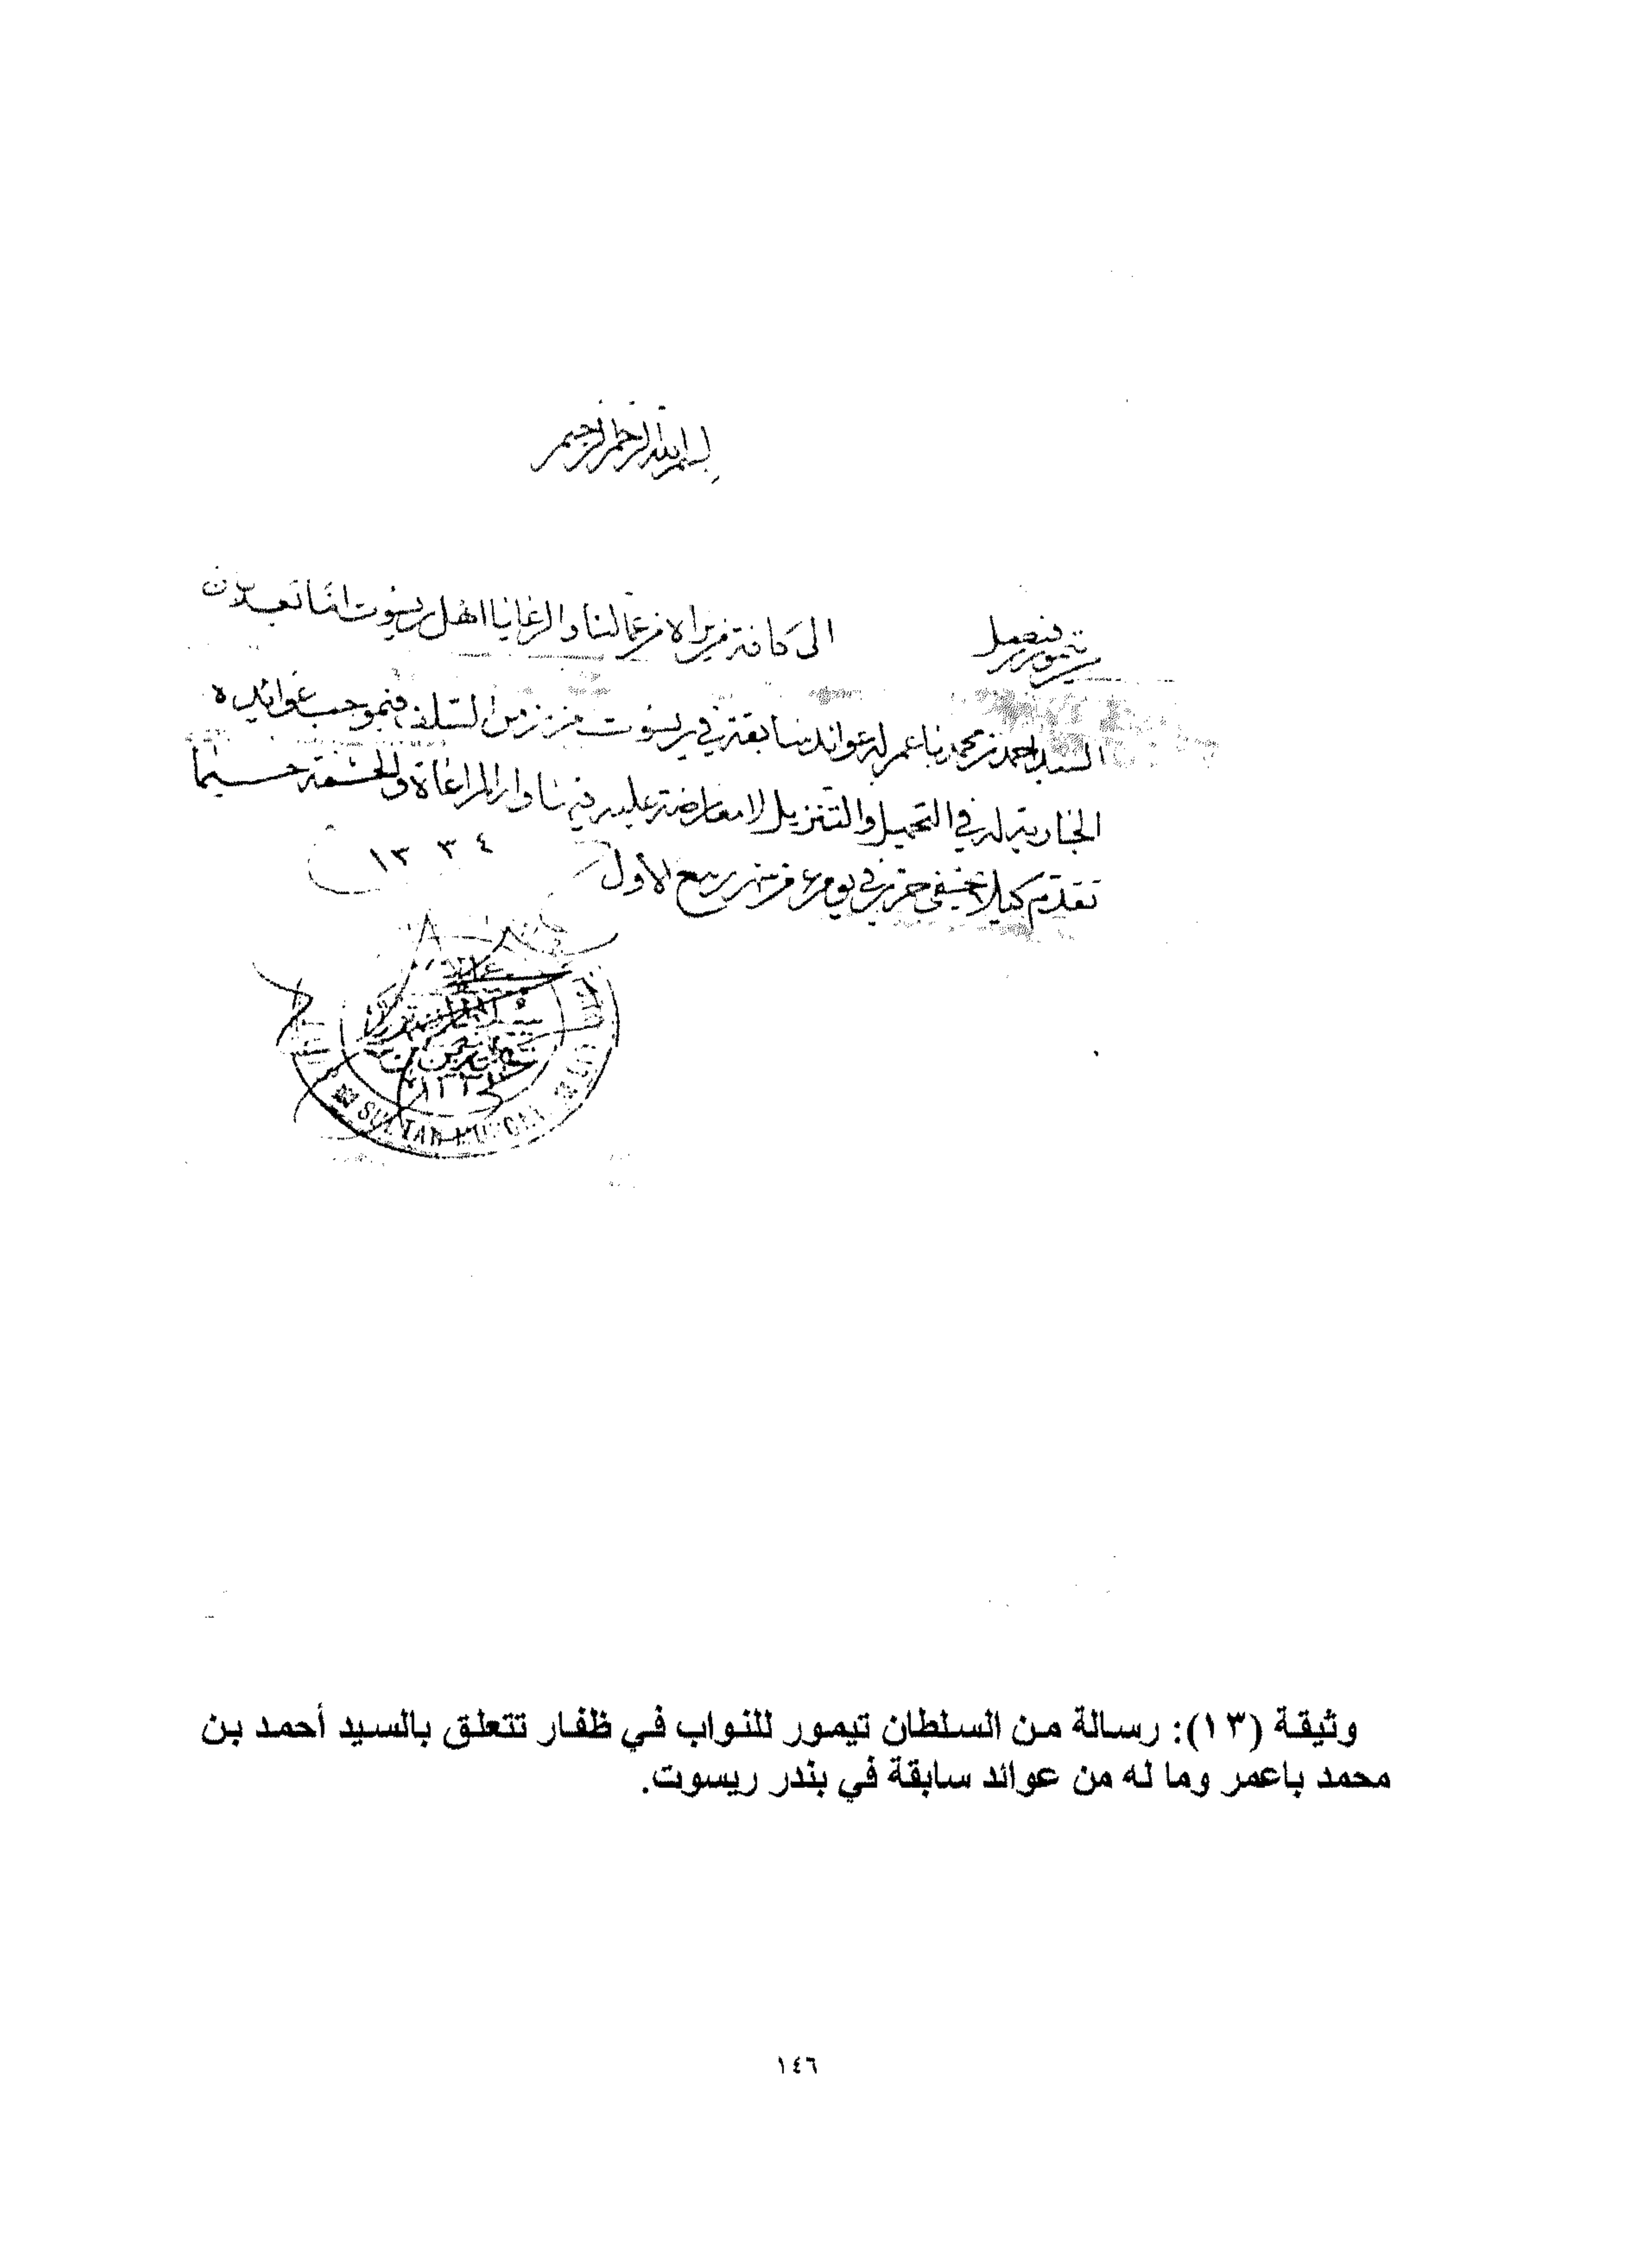 بسم الله الرحمن الرحيم
تيمور بن فيصل
الى كافة من يراه من عمالنا والرعايا اهل ريسوت اننا تعد لان
السيد احمد بن محمد باعمر له عوائد سابقة في ريسوت من زمن السلف فبموجب عوائده
الجارية له في التحميل والتنزيل لا معارضة عليه فيها وله المراعاة والحشمة حسبما
تقدم كيلا يخفى حرر في يوم من شهر ربيع الأول
١٣٣٤
SULTAN MUSCAT
وثيقة (١٣): رسالة من السلطان تيمور للنواب في ظفار تتعلق بالسيد أحمد بن
محمد باعمر وما له من عوائد سابقة في بندر ريسوت.
١٤٦